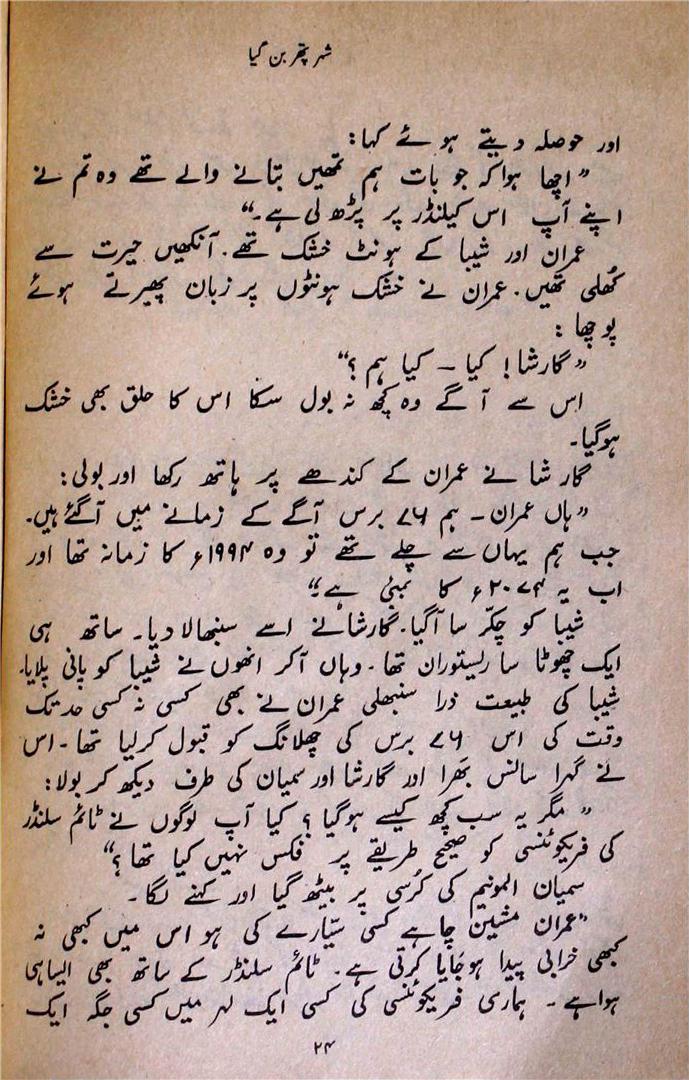 شہر پتھر بن گیا
اور حوصلہ دیتے ہوئے کہا:
”اچھا ہوا کہ جو بات ہم تمھیں بتانے والے تھے وہ تم نے
اپنے آپ اس کیلنڈر پر پڑھ لی ہے۔“
عمران اور شیبا کے ہونٹ خشک تھے۔ آنکھیں حیرت سے
کُھلی تھیں۔ عمران نے خشک ہونٹوں پر زبان پھیرتے ہوئے
پوچھا :
”گارشا! کیا – کیا ہم ؟“
اس سے آگے وہ کچھ نہ بول سکا اس کا حلق بھی خشک
ہوگیا۔
گارشا نے عمران کے کندھے پر ہاتھ رکھا اور بولی:
”ہاں عمران۔ ہم ۷۶ برس آگے کے زمانے میں آگئے ہیں۔
جب ہم یہاں سے چلے تھے تو وہ ۱۹۹۴ء کا زمانہ تھا اور
اب یہ ۲۰۷۴ء کا بمبئی ہے“
شیبا کو چکّر سا آگیا۔ گارشا نے اسے سنبھالا دیا۔ ساتھ ہی
ایک چھوٹا سا ریستوران تھا۔ وہاں آکر انھوں نے شیبا کو پانی پلایا۔
شیبا کی طبیعت ذرا سنبھلی عمران نے بھی کسی نہ کسی حد تک
وقت کی اس ۷۶ برس کی چھلانگ کو قبول کرلیا تھا۔ اس
نے گہرا سانس بھرا اور گارشا اور سمیان کی طرف دیکھ کر بولا:
”مگر یہ سب کچھ کیسے ہوگیا ؟ کیا آپ لوگوں نے ٹائم سلنڈر
کی فریکوئنسی کو صحیح طریقے پر فکس نہیں کیا تھا ؟“
سمیان المونیم کی کُرسی پر بیٹھ گیا اور کہنے لگا۔
”عمران مشین چاہے کسی سیّارے کی ہو اس میں کبھی نہ
کبھی خرابی پیدا ہوجایا کرتی ہے۔ ٹائم سلنڈر کے ساتھ بھی ایسا ہی
ہوا ہے ۔ ہماری فریکوئنسی کی کسی ایک لہر میں کسی جگہ ایک
۲۴